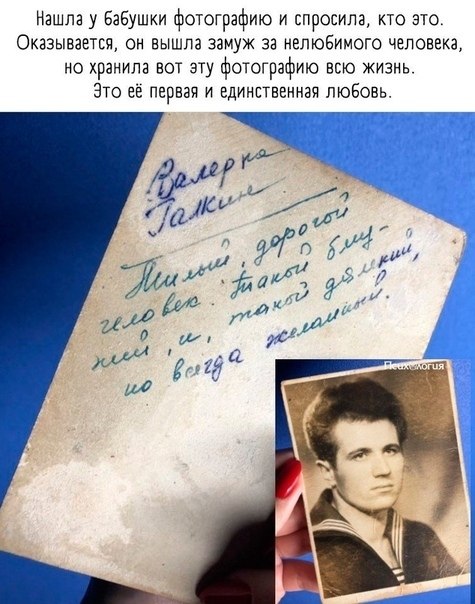 Нашла у бабушки фотографию и спросила, кто это.
Оказывается, он вышла замуж за нелюбимого человека,
но хранила вот эту фотографию всю жизнь.
Это её первая и единственная любовь.
Валерка
Галкин
Милый, дорогой
человек. Такой бли-
жний, и, такой далёкий,
но всегда желанный.
Психология